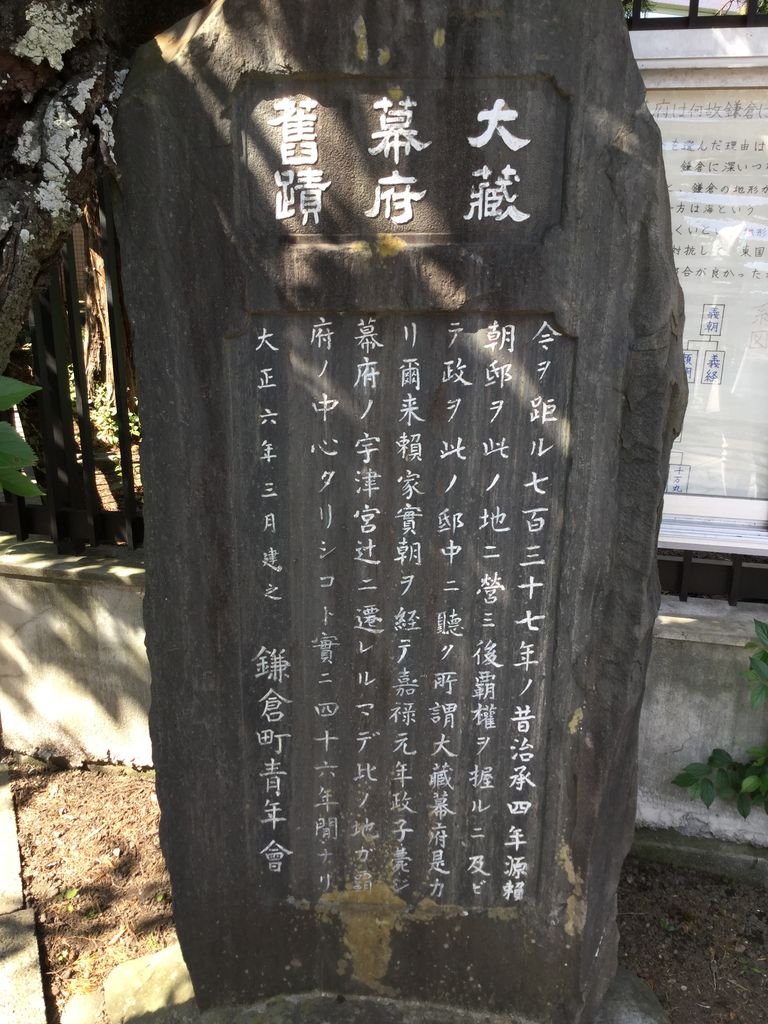 大藏
幕府
舊蹟
今ヲ距ル七百三十七年ノ昔治承四年源賴
朝邸ヲ此ノ地ニ營ミ後覇權ヲ握ルニ及ビ
テ政ヲ此ノ邸中ニ聽ク所謂大藏幕府是カ
リ爾来賴家實朝ヲ経テ嘉禄元年政子薨ジ
幕府ノ宇津宮辻ニ遷レルマデ此ノ地カ覇
府ノ中心タリシコト實ニ四十六年間ナリ
大正六年三月建之 鎌倉町青年會
府は何故鎌倉に
を選んだ理由は
鎌倉に深いつ
鎌倉の地形が
方は海という
くいと
地形
対抗し
東国
合が良かった
義朝
義経
十万丸